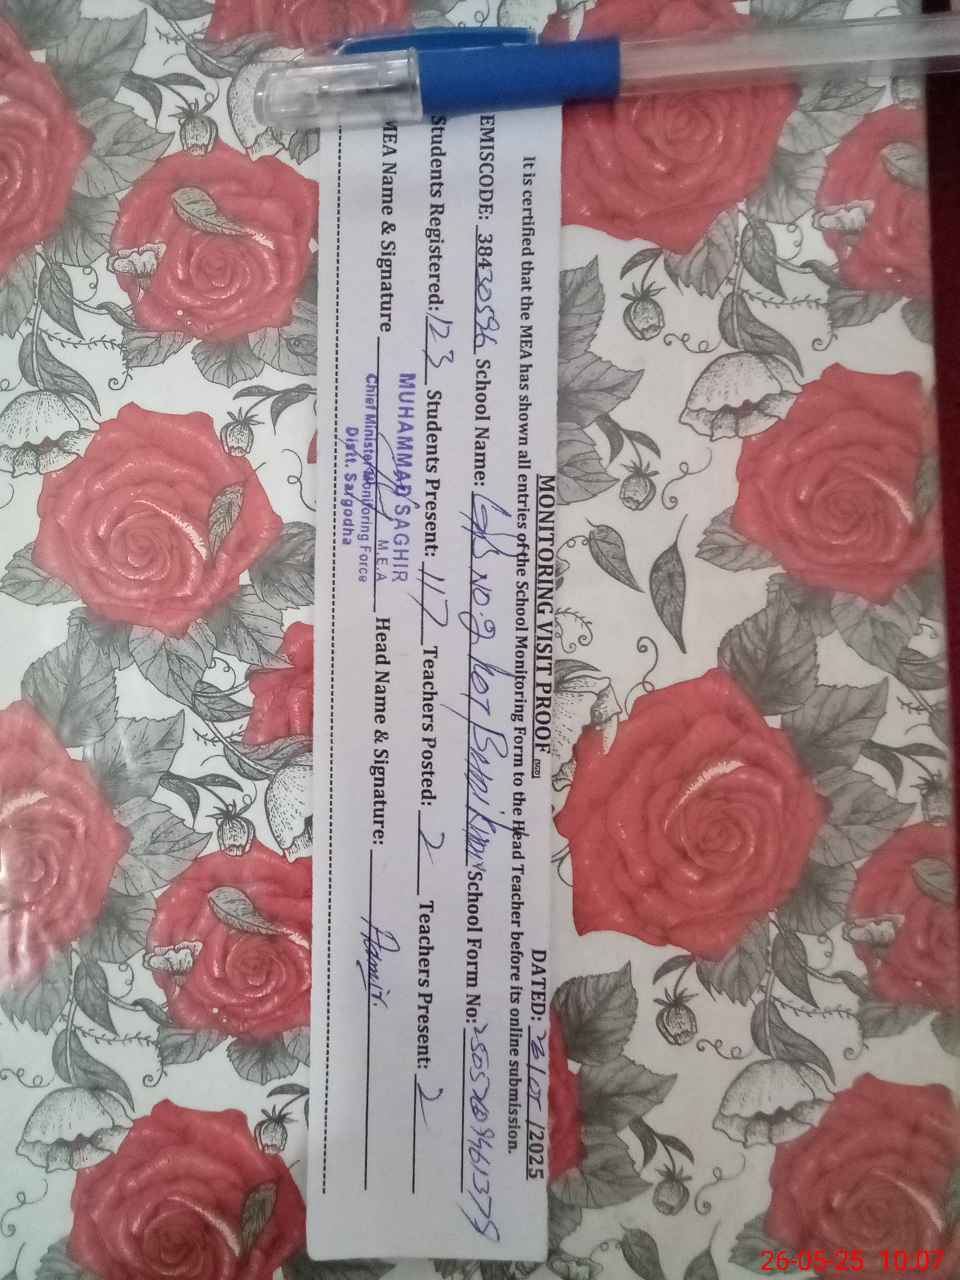 MONITORING VISIT PROOF (SGD) DATED: 26/05/2025
It is certified that the MEA has shown all entries of the School Monitoring Form to the Head Teacher before its online submission.
EMISCODE: 38430596 School Name: No. 9 School Form No:
Students Registered: 123 Students Present: 117 Teachers Posted: 2 Teachers Present: 2
MEA Name & Signature Head Name & Signature:
MUHAMMAD SAGHIR
M.E.A
Chief Minister Monitoring Force
Distt. Sargodha
26-05-25 10:07